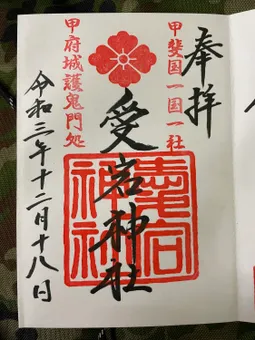 奉拝
甲斐国一国一社
愛宕神社
愛宕神社
甲府城護鬼門処
令和三年十二月十八日